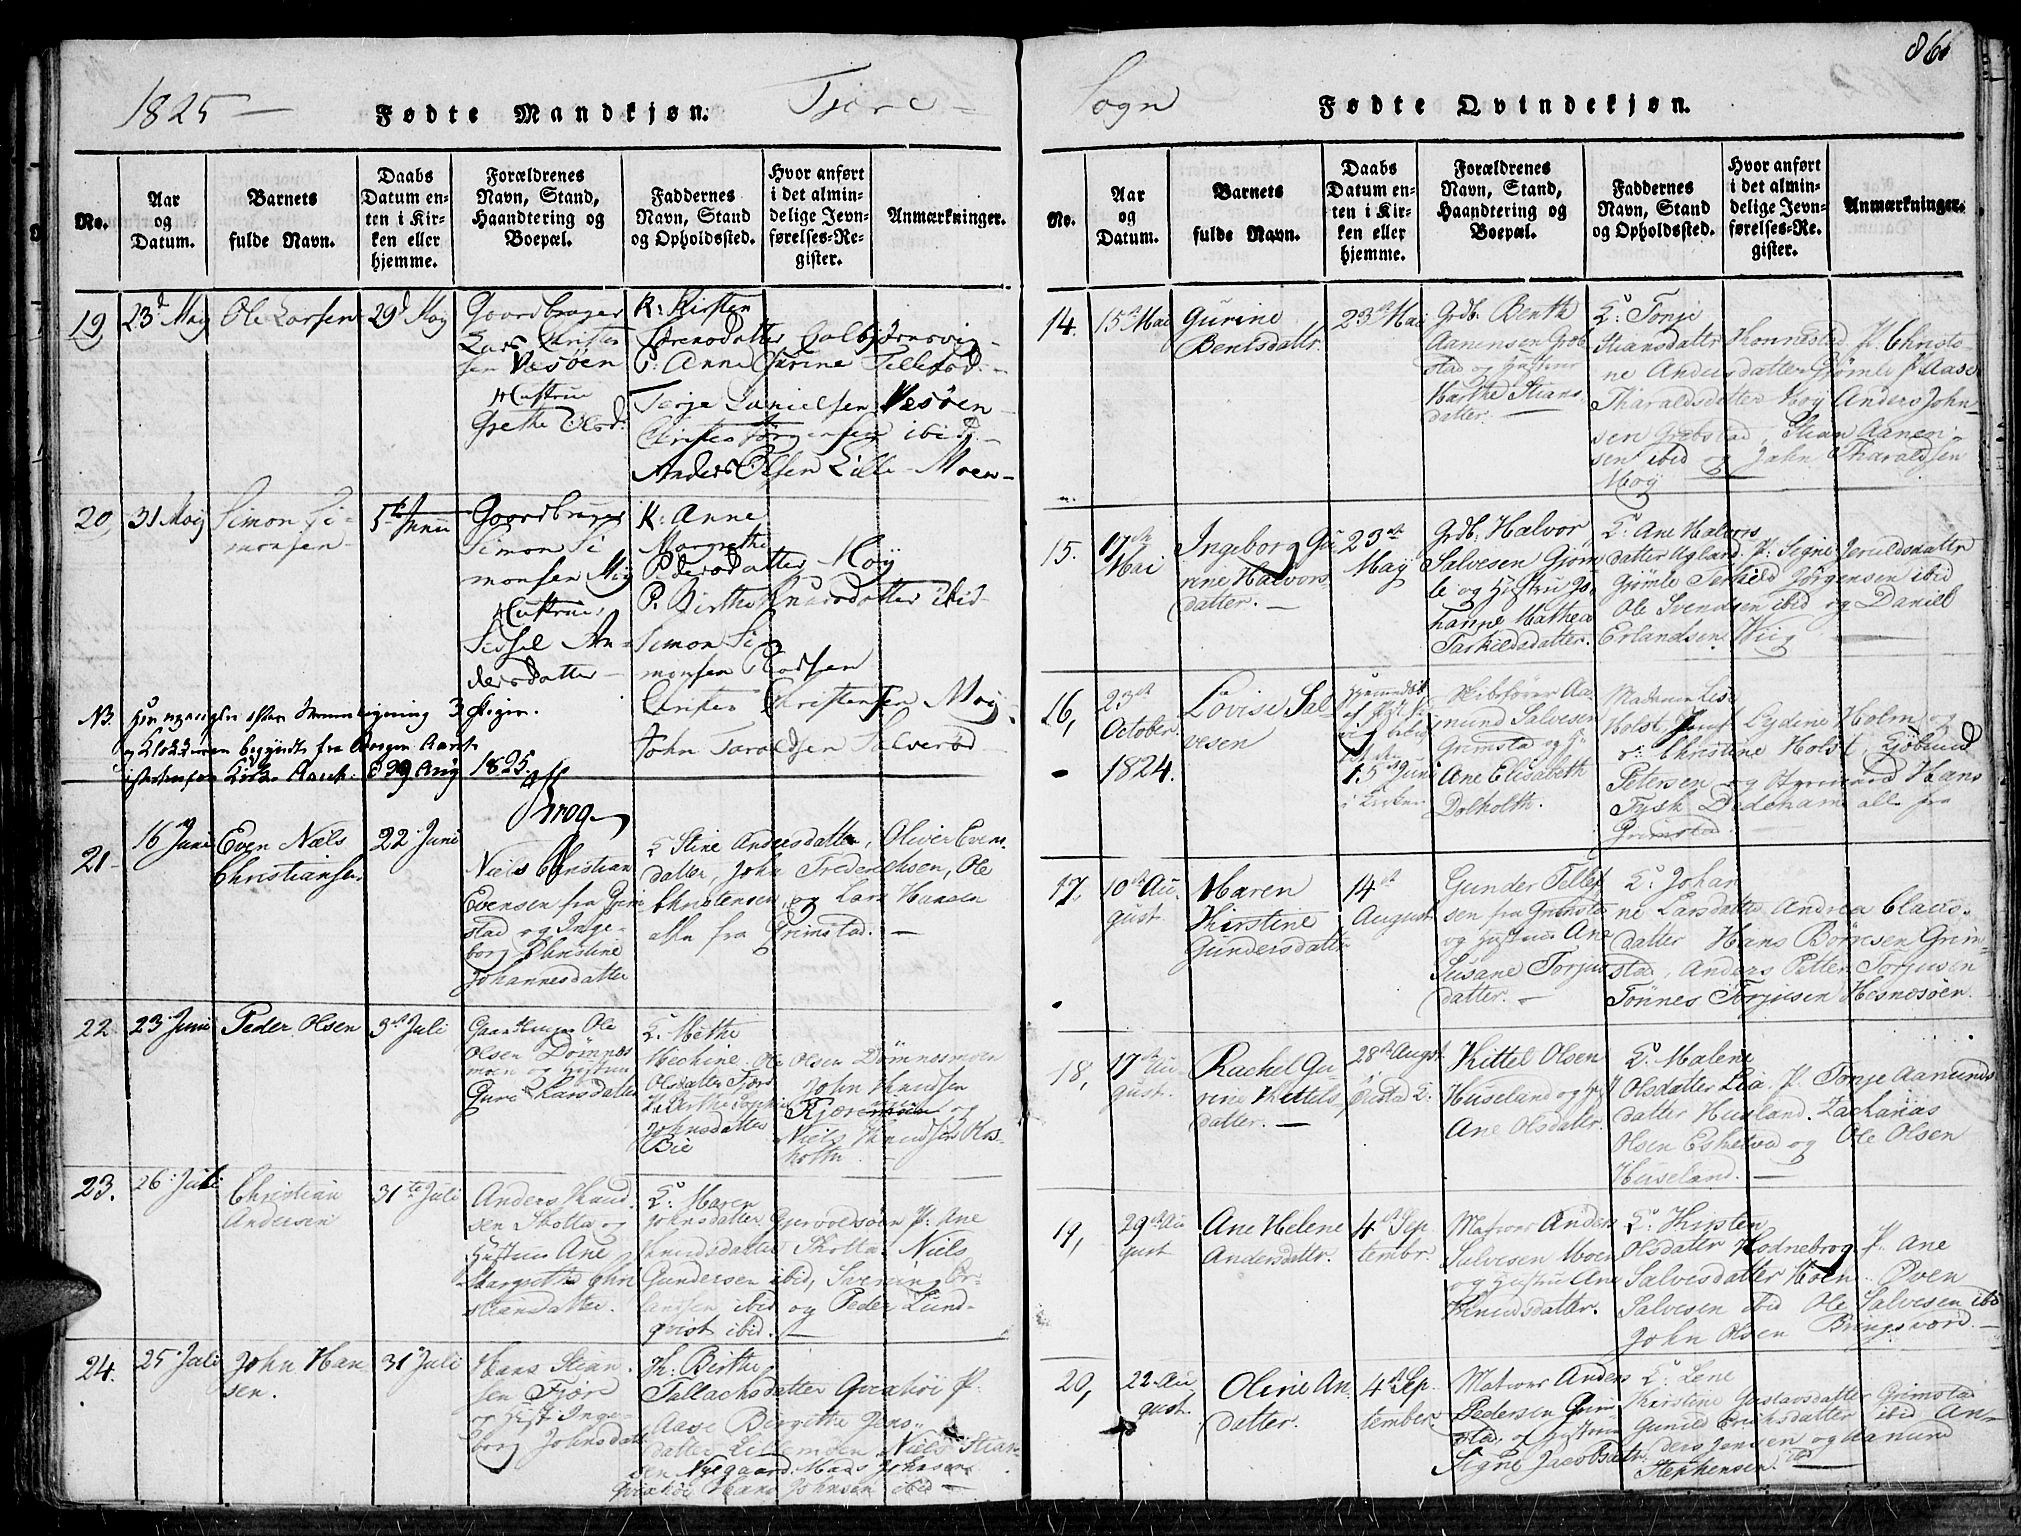 1825 —
Fødte Mandkjøn.
No.
Aar og Datum.
Barnets fulde Navn.
Daabs Datum enten i Kirken eller hjemme.
Forældrenes Navn, Stand, Haandtering og Boepæl.
Faddernes Navn, Stand og Opholdssted.
Hvor anført i det almindelige Jevnførelses-Register.
Anmærkninger.
19,
23d May
Ole Larsen
29d May
Gaardbruger
Lars Christen
sen Vesøen
Hustrue
Grethe Olsd:
K: Kirsten
Sørensdatter Calbjørnsvig
P: Anne Cathrine Tellefsd:
Terje Danielsen Vesøen
Christen Jørgensen ibid
Anders Olsen Lille-Moen-
20,
31 May
Simon Si-
monsen
5te Junii
Gaardbruger
Simon Si
monsen Møy
Hustrue
Sissel An-
dersdatter
K: Anne
Margrethe
Pedersdatter Møy
P. Birthe Knudsdatter ibid
Simon Si-
monsen
Christen Christensen Møy
John Taraldsen Salverød
NB.
1825.
Krog
21
16 Juni
Even Niels
Christiansen
22 Juni
Niels Christian
Evensen fra Grim
stad og Inge-
borg Christine
Johannesdatter
K Stine Andersdatter, Olivie Evens
datter, John Frederichsen, Ole
Christensen og Lars Hansen
alle fra Grimstad. —
22
23 Juni
Peder Olsen
3d Juli
Gaardbruger Ole
Olsen Dømnes
moen og Hustrue
Gure Larsdatter
K: Methe
Mechine
Olsdatter Fjære
Birthe Sophie
Johnsdatter
Bie
Ole Olsen Dømnesmoen
John Knudsen
Fjære og
Niels Knudsen Ols-
holtte
23.
26 Juli
Christian
Andersen
31te Juli
Anders Knud
sen Skotta og
Hustrue Ane
Margrethe Chri
stiansdatter.
K: Maren
Johnsdatter Gjervoldsøen P: Ane
Knudsdatter Skotta Niels
Gundersen ibid, Søren Er-
landsen ibid og Peder Lund-
qvist ibid. —
24.
25 Juli
John Han
sen.
31 Juli
Hans Stian
sen Fjære
og Hust Inge-
borg Johnsdatt
K: Birthe
Tallachsdatter Qvækøi P.
Aase Birgitte Jens
datter Lillemoen Niels Stian-
sen Nygaard. Mads Johnsen
Qvækøi Hans Johnsen ibid —
Fjære — Sogn
86
Fødte Qvindekjøn.
No.
Aar og Datum.
Barnets fulde Navn.
Daabs Datum enten i Kirken eller hjemme.
Forældrenes Navn, Stand, Haandtering og Boepæl.
Faddernes Navn, Stand og Opholdssted.
Hvor anført i det almindelige Jevnførelses-Register.
Anmærkninger.
14.
15d Mai
Gurine
Bentsdattr.
23d Mai
Grdb. Benth
Aanensen Grøb
stad og Hustrue
Marthe Stians
datter. —
K: Tonje
Stiansdatter Konnestad P. Christo-
ne Andersdatter Gjømle P. Aase
Tharaldsdatter Moy Anders John-
sen Grøbstad, Stian Aanen-
sen ibid og John Tharaldsen
Moy
15.
17de
Mai
Ingeborg Gu
rine Halvors
datter. —
23de
May
Grdb. Halvor
Salvesen Gjøm
le og Hustru Jo
hanne Mathea
Tarkildsdatter.
K: Ane Halvors
datter Agland P. Signe Jeruldsdatter
Gjømle Terkild Jørgensen ibid
Ole Svendsen ibid og Daniel
Erlandsen Wiig —
16,
23de
October
1824.
Lovise Sal-
vesen
5 Juni
i Kirken
Aa
mund Salvesen
Grimstad og H
Ane Elisabeth
Dolholth.
Madame Lise
Holst Jomf Lydine Holm og
Christine Holst, Kjøbmd
Petersen og Styrmand Hans
Tysk Dedekam alle fra
Grimstad.
17.
10de Au
gust.
Maren
Kirstine
Gundersdatter
14de
August
Gunder Tellef
sen fra Grimsta
og Hustrue Ane
Susane Torjus
datter. —
K: Johan
ne Larsdatter Andrea Claus-
datter Hans Børresen Grim-
stad, Anders Petter Torjusen
Tønnes Torjusen Hesnesøen.
18,
17de Au-
gust.
Rachel Gu
rine Kittels
datter. —
28de Augst
Øiestad K.
Kittel Olsen
Huseland og H
Ane Olsdattr.
K: Malene
Olsdatter Lia. P. Tonje Aamunds
datter Huseland. Zacharias
Olsen Eskeved og Ole Olsen
Huseland. —
19,
29de Au
gust
Ane Helene
Andersdattr.
4de Sep
tembr.
Matros Anders
Salvesen Moen
og Hustru Ane
Knudsdatter.
K: Kirsten
Olsdatter Hodnebrog P. Ane
Salvesdatter Moen. Oven
Salvesen ibid Ole Salvesen ibd
John Olsen Bringsværd —
20,
22 Au
gust.
Oline An
datter.
4de Sep
tember
Matros Anders
Pedersen Grim
stad, og Hustrue
Signe Jacobsdatr
K: Lene
Kirstine Gustavsdatter Grimstad
Gunild Erichsdatter ibid An-
ders Jensen og Aanund
Stephensen ibd —